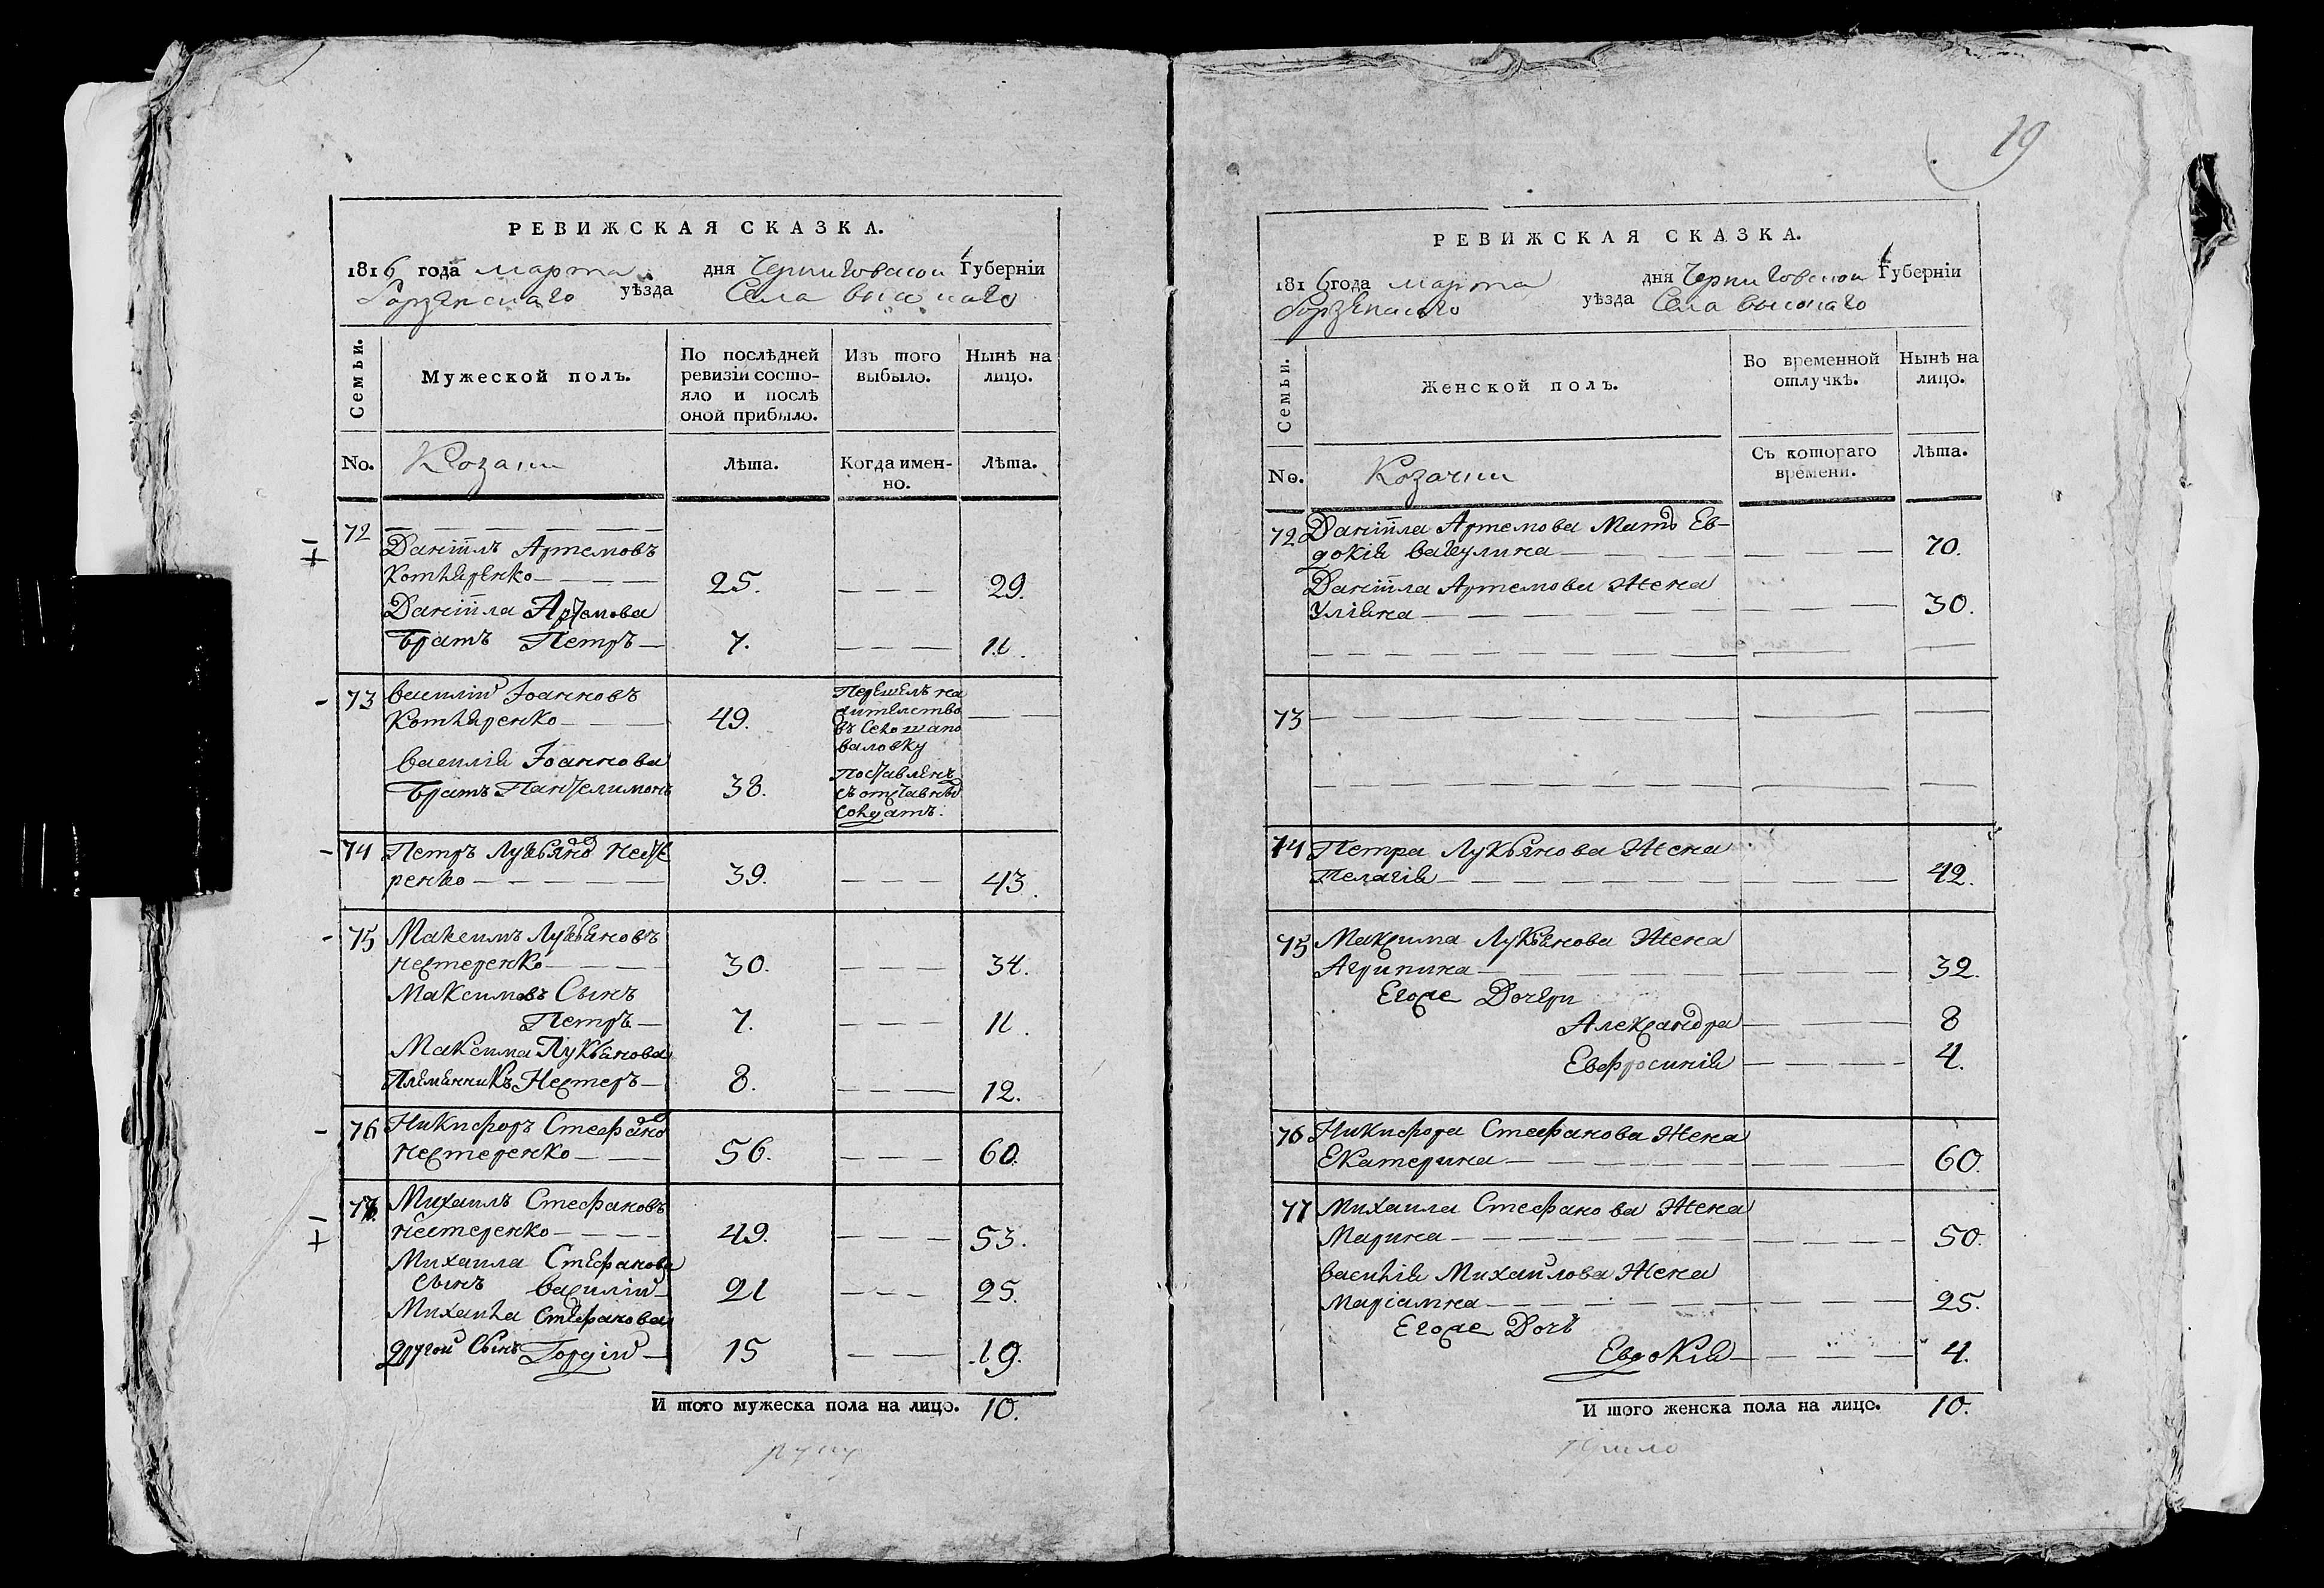 РЕВИЖСКАЯ СКАЗКА.
1816 года марта дня Черниговской Губерніи
Борзенскаго уѣзда Села Высокаго
Семьи.
Мужеской полъ.
По послѣдней ревизіи состо-
яло и послѣ
оной прибыло.
Изъ того
выбыло.
Нынѣ на
лицо.
No.
Козаки
Лѣта.
Когда имен-
но.
Лѣта.
72
Даніилъ Артемовъ
Котляренко 25. 29.
Даніила Артемова
Братъ Петръ 7. 11.
73 Василій Іоанновъ
Котляренко 49. Перешелъ на
жителство
въ село шапо
валовку
Василія Іоаннова
Братъ Пантелимонъ 38. Поставленъ
съ отставныхъ
солдатъ.
74 Петръ Лукьяновъ Несте
ренко 39. 43.
75 Максимъ Лукьяновъ
нестеренко 30. 34.
Максимовъ Сынъ
Петръ 7. 11.
Максима Лукьянова
Племянникъ Нестеръ 8. 12.
76 Никифоръ Стефановъ
нестеренко 56. 60.
77 Михаилъ Стефановъ
нестеренко 49. 53.
Михаила Стефанова
Сынъ Василій 21 25.
Михаила Стефанова
другой Сынъ Гордій 15 19.
И того мужеска пола на лицо. 10.
19
РЕВИЖСКАЯ СКАЗКА.
1816 года марта дня Черниговской Губерніи
Борзенскаго уѣзда Села Высокаго
Семьи.
Женской полъ.
Во временной
отлучкѣ.
Нынѣ на
лицо.
No.
Козачки
Съ котораго
времени.
Лѣта.
72 Даніила Артемова Мать Ев-
докія Вакулина 70.
Даніила Артемова Жена
Уліяна 30.
73
74 Петра Лукьянова Жена
Пелагія 42.
75 Максима Лукьянова Жена
Агрипина 32.
Егоже Дочери
Александра 8
Евфросинія 4.
76 Никифора Стефанова Жена
Екатерина 60.
77 Михаила Стефанова Жена
Марина 50.
Василія Михайлова Жена
Маріамна 25.
Егоже Дочь
Евдокія 4.
И того женска пола на лицо. 10.